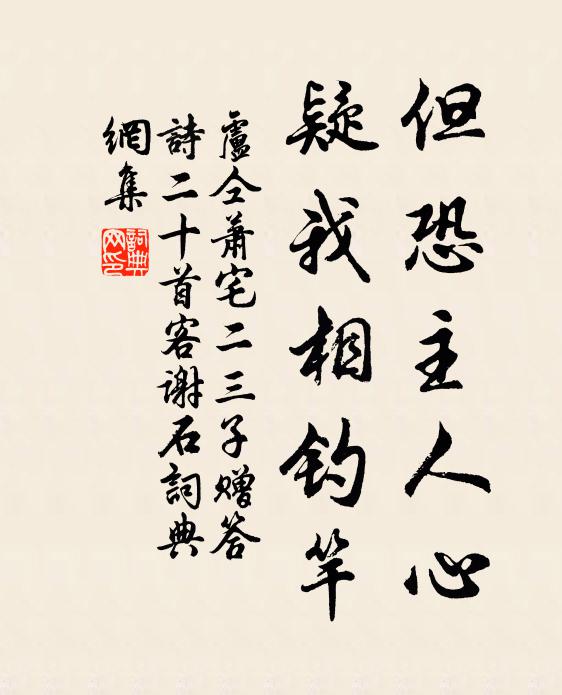 但恐主人心
疑我相钓竿
盧仝萧宅二三子赠答
詩二十首客谢石詞典
網集
詞典网印